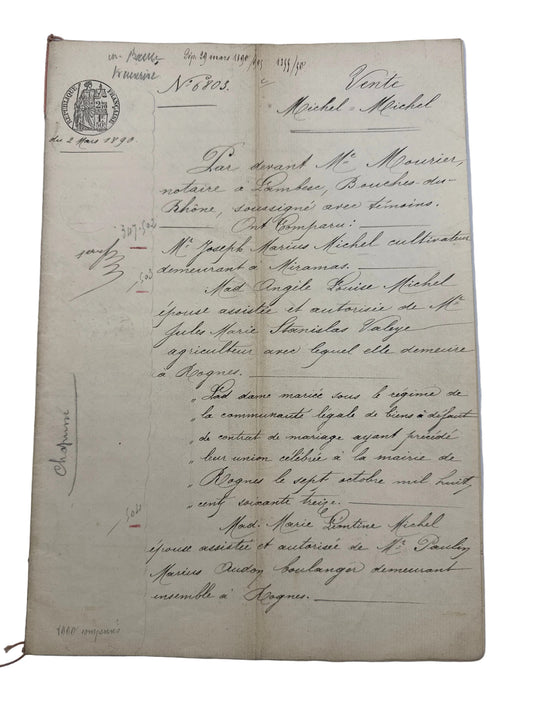 Dép. 29 mars 1890
No 6803.
Vente
Michel = Michel
RÉPUBLIQUE FRANÇAISE
du 2 Mars 1890.
Par devant Me Mourier,
notaire à Lambesc, Bouches-du-
Rhône, soussigné avec témoins.
Ont Comparu:
Mr Joseph Marius Michel cultivateur
demeurant à Miramas.
Mad Angèle Louise Michel
épouse assistée et autorisée de Mr
Jules Marie Stanislas Valeye
agriculteur avec lequel elle demeure
à Rognes.
" Lad dame mariée sous le régime de
" la communauté légale de biens à défaut
" de contrat de mariage ayant précédé
" leur union célébrée à la mairie de
" Rognes le sept octobre mil huit
" cent soixante treize.
Mad. Marie Léontine Michel
épouse assistée et autorisée de Mr Paulin
Marius Audon boulanger demeurant
ensemble à Rognes.
307.502
503
504